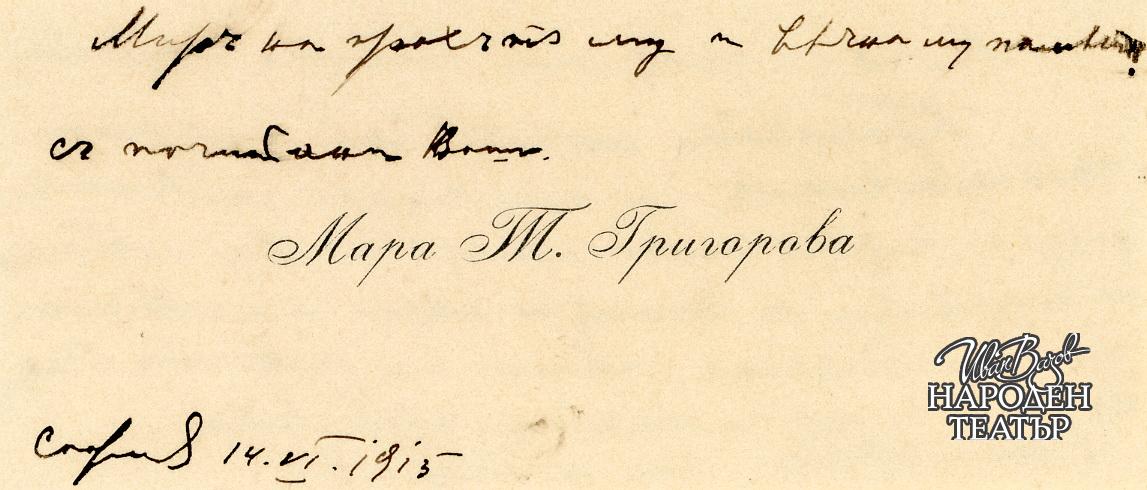 Миръ на прахътъ му и вѣчна му паметь!
съ почитание Ваша.
Мара Т. Григорова
София 14.VI.1915
Иван Вазов
НАРОДЕН
ТЕАТЪР